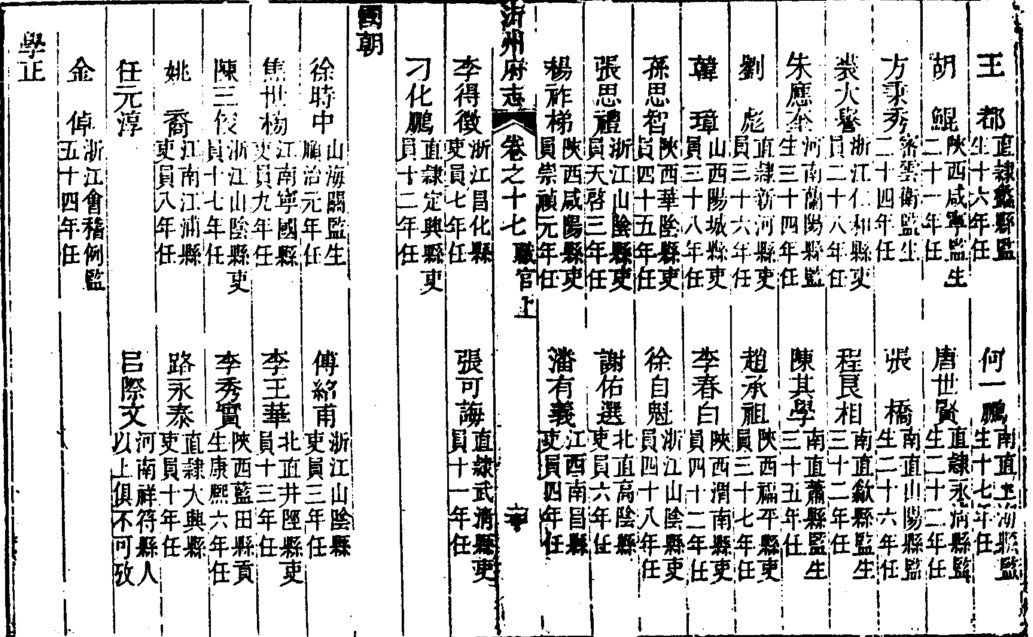 王都 直隸蠡縣監生十六年任
何一鵬 南直上海縣監生十七年任
胡鯤 陝西咸寧監生二十一年任
唐世賢 直隸永清縣監生二十二年任
方秉秀 密雲衛監生二十四年任
張橋 南直山陽縣監生二十六年任
裴大譽 浙江仁和縣吏員二十八年任
程良相 南直歙縣監生三十二年任
朱應奎 河南蘭陽縣監生三十四年任
陳其學 南直蕭縣監生三十五年任
劉彪 直隸新河縣吏員三十六年任
趙承祖 陝西福平縣吏員三十七年任
韓璋 山西陽城縣吏員三十八年任
李春白 陝西渭南縣吏員四十二年任
孫思智 陝西華陰縣吏員四十五年任
徐自魁 浙江山陰縣吏員四十八年任
張思禮 浙江山陰縣吏員天啓三年任
謝佑選 北直高陰縣吏員六年任
楊祚梯 陝西咸陽縣吏員崇禎元年任
潘有義 江西南昌縣吏員四年任
沂州府志 卷之十七 職官上
李得徵 浙江昌化縣吏員七年任
張可誨 直隸武清縣吏員十一年任
刁化鵬 直隸定興縣吏員十二年任
國朝
徐時中 山海關監生順治元年任
傅紹甫 浙江山陰縣吏員三年任
焦世楊 江南寧國縣吏員九年任
李王華 北直井陘縣吏員十三年任
陳三俊 浙江山陰縣吏員十七年任
李秀實 陝西藍田縣貢生康熙六年任
姚裔 江南江浦縣吏員八年任
路永泰 直隸大興縣吏員十年任
任元淳
呂際文 河南祥符縣人以上俱不可攷
金倬 浙江會稽例監五十四年任
學正